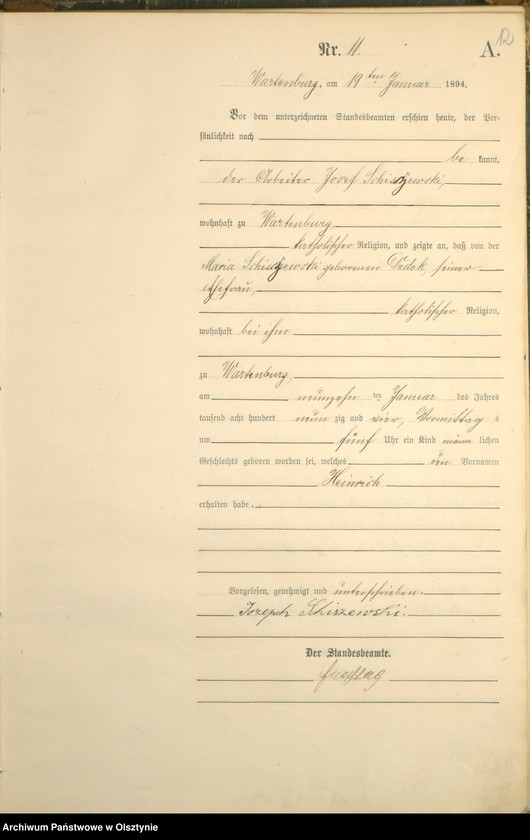 12
Nr. 11. A.
Wartenburg, am 19ten Januar 1894.
Vor dem unterzeichneten Standesbeamten erschien heute, der Per-
sönlichkeit nach
be kannt,
der Arbeiter Josef Schiszewski,
wohnhaft zu Wartenburg,
katholischer Religion, und zeigte an, daß von der
Maria Schiszewski geborenen Dedek, seiner
Ehefrau,
katholischer Religion,
wohnhaft bei ihm
zu Wartenburg,
am neunzehn ten Januar des Jahres
tausend acht hundert neun zig und vier, Vormittag s
um fünf Uhr ein Kind männ lichen
Geschlechts geboren worden sei, welches den Vornamen
Heinrich
erhalten habe.
Vorgelesen, genehmigt und unterschrieben.
Jozeph Schiszewski.
Der Standesbeamte.
Archiwum Państwowe w Olsztynie